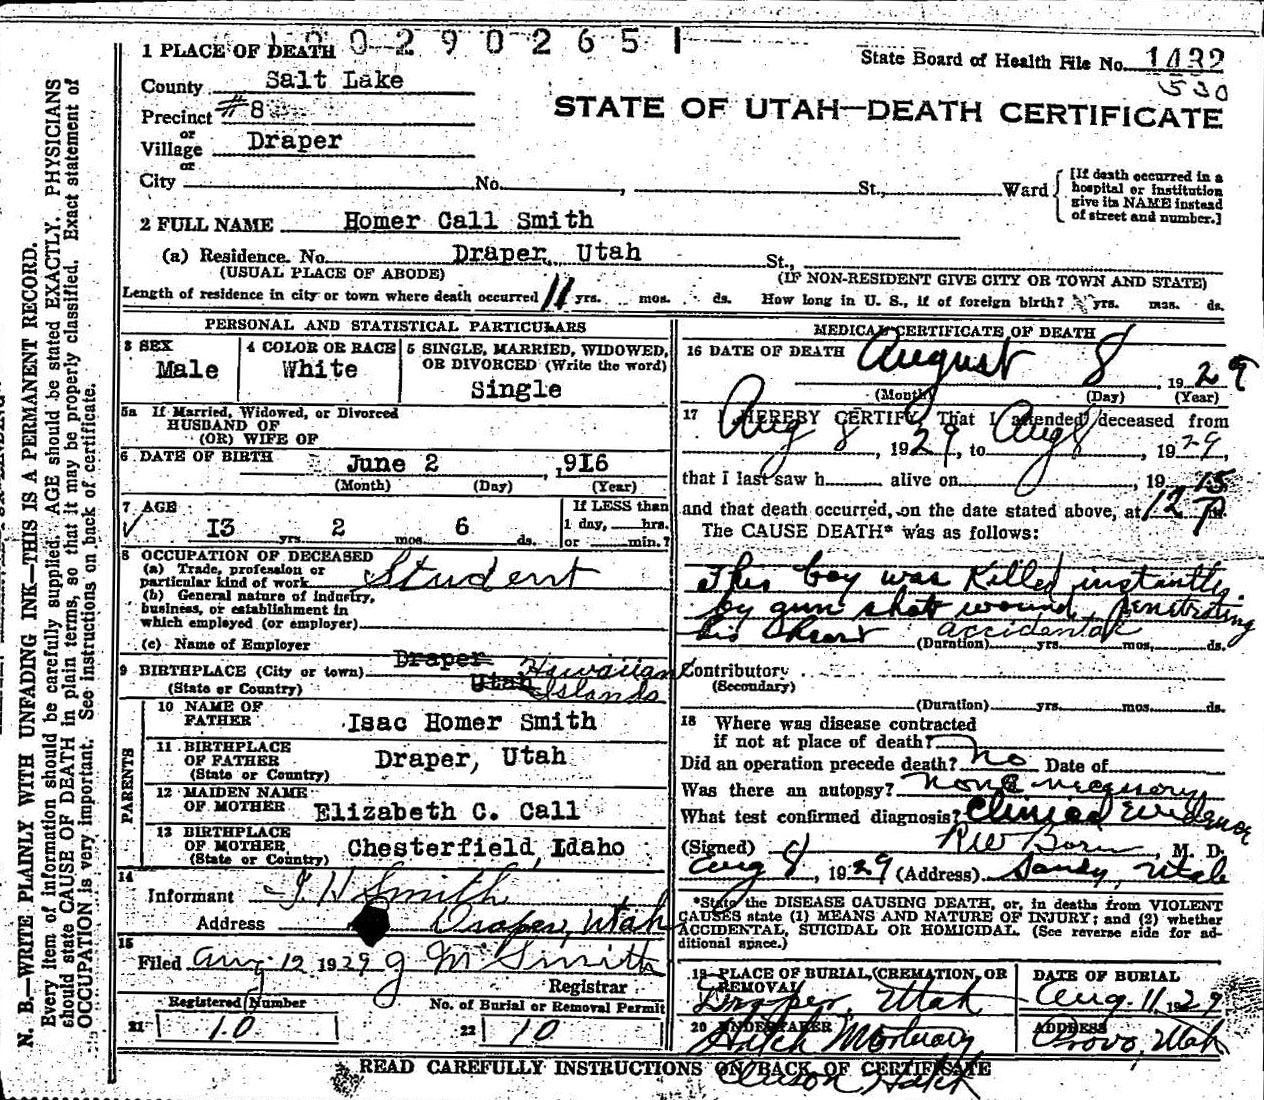 1 0 0 2 9 0 2 6 5 1
1 PLACE OF DEATH
State Board of Health File No. 1432
530
County Salt Lake
Precinct #8
STATE OF UTAH—DEATH CERTIFICATE
or
Village Draper
or
City No. , St., Ward
[If death occurred in a
hospital or institution
give its NAME instead
of street and number.]
2 FULL NAME Homer Call Smith
(a) Residence. No. Draper, Utah St.,
(USUAL PLACE OF ABODE) (IF NON-RESIDENT GIVE CITY OR TOWN AND STATE)
Length of residence in city or town where death occurred 11 yrs. mos. ds. How long in U. S., if of foreign birth? yrs. mos. ds.
PERSONAL AND STATISTICAL PARTICULARS
3 SEX
Male
4 COLOR OR RACE
White
5 SINGLE, MARRIED, WIDOWED,
OR DIVORCED (Write the word)
Single
5a If Married, Widowed, or Divorced
HUSBAND OF
(OR) WIFE OF
6 DATE OF BIRTH June 2 ,916
(Month) (Day) (Year)
7 AGE
If LESS than
13 yrs. 2 mos. 6 ds.
1 day, hrs.
or min.?
8 OCCUPATION OF DECEASED
(a) Trade, profession or
particular kind of work Student
(b) General nature of industry,
business, or establishment in
which employed (or employer)
(c) Name of Employer
9 BIRTHPLACE (City or town) Draper Hawaiian
(State or Country) Utah Islands
PARENTS
10 NAME OF
FATHER Isac Homer Smith
11 BIRTHPLACE
OF FATHER Draper, Utah
(State or Country)
12 MAIDEN NAME
OF MOTHER Elizabeth C. Call
13 BIRTHPLACE
OF MOTHER Chesterfield, Idaho
(State or Country)
14
Informant I. H Smith
Address Draper, Utah
15
Filed Aug 12 1929 J M Smith
Registrar
Registered Number No. of Burial or Removal Permit
21 10 22 10
MEDICAL CERTIFICATE OF DEATH
16 DATE OF DEATH August 8, 1929
(Month) (Day) (Year)
17 I HEREBY CERTIFY, That I attended deceased from
Aug 8, 1929, to Aug 8, 1929,
that I last saw h alive on , 19
and that death occurred, on the date stated above, at 12 15 P m.
The CAUSE DEATH* was as follows:
This boy was Killed instantly
by gun shot wound, penetrating
his heart accidental
(Duration) yrs. mos. ds.
Contributory
(Secondary)
(Duration) yrs. mos. ds.
18 Where was disease contracted
if not at place of death?
Did an operation precede death? no Date of
Was there an autopsy? none necessary
What test confirmed diagnosis? Clinical Evidence
(Signed) , M. D.
Aug 8, 1929 (Address) Sandy, Utah
*State the DISEASE CAUSING DEATH, or, in deaths from VIOLENT
CAUSES state (1) MEANS AND NATURE OF INJURY; and (2) whether
ACCIDENTAL, SUICIDAL OR HOMICIDAL. (See reverse side for ad-
ditional space.)
19 PLACE OF BURIAL, CREMATION, OR
REMOVAL
Draper, Utah
DATE OF BURIAL
Aug. 11, 1929
20 UNDERTAKER
Hatch Mortuary
ADDRESS
Provo, Utah
READ CAREFULLY INSTRUCTIONS ON BACK OF CERTIFICATE
N. B.—WRITE PLAINLY WITH UNFADING INK—THIS IS A PERMANENT RECORD.
Every item of information should be carefully supplied. AGE should be stated EXACTLY. PHYSICIANS
should state CAUSE OF DEATH in plain terms, so that it may be properly classified. Exact statement of
OCCUPATION is very important. See instructions on back of certificate.